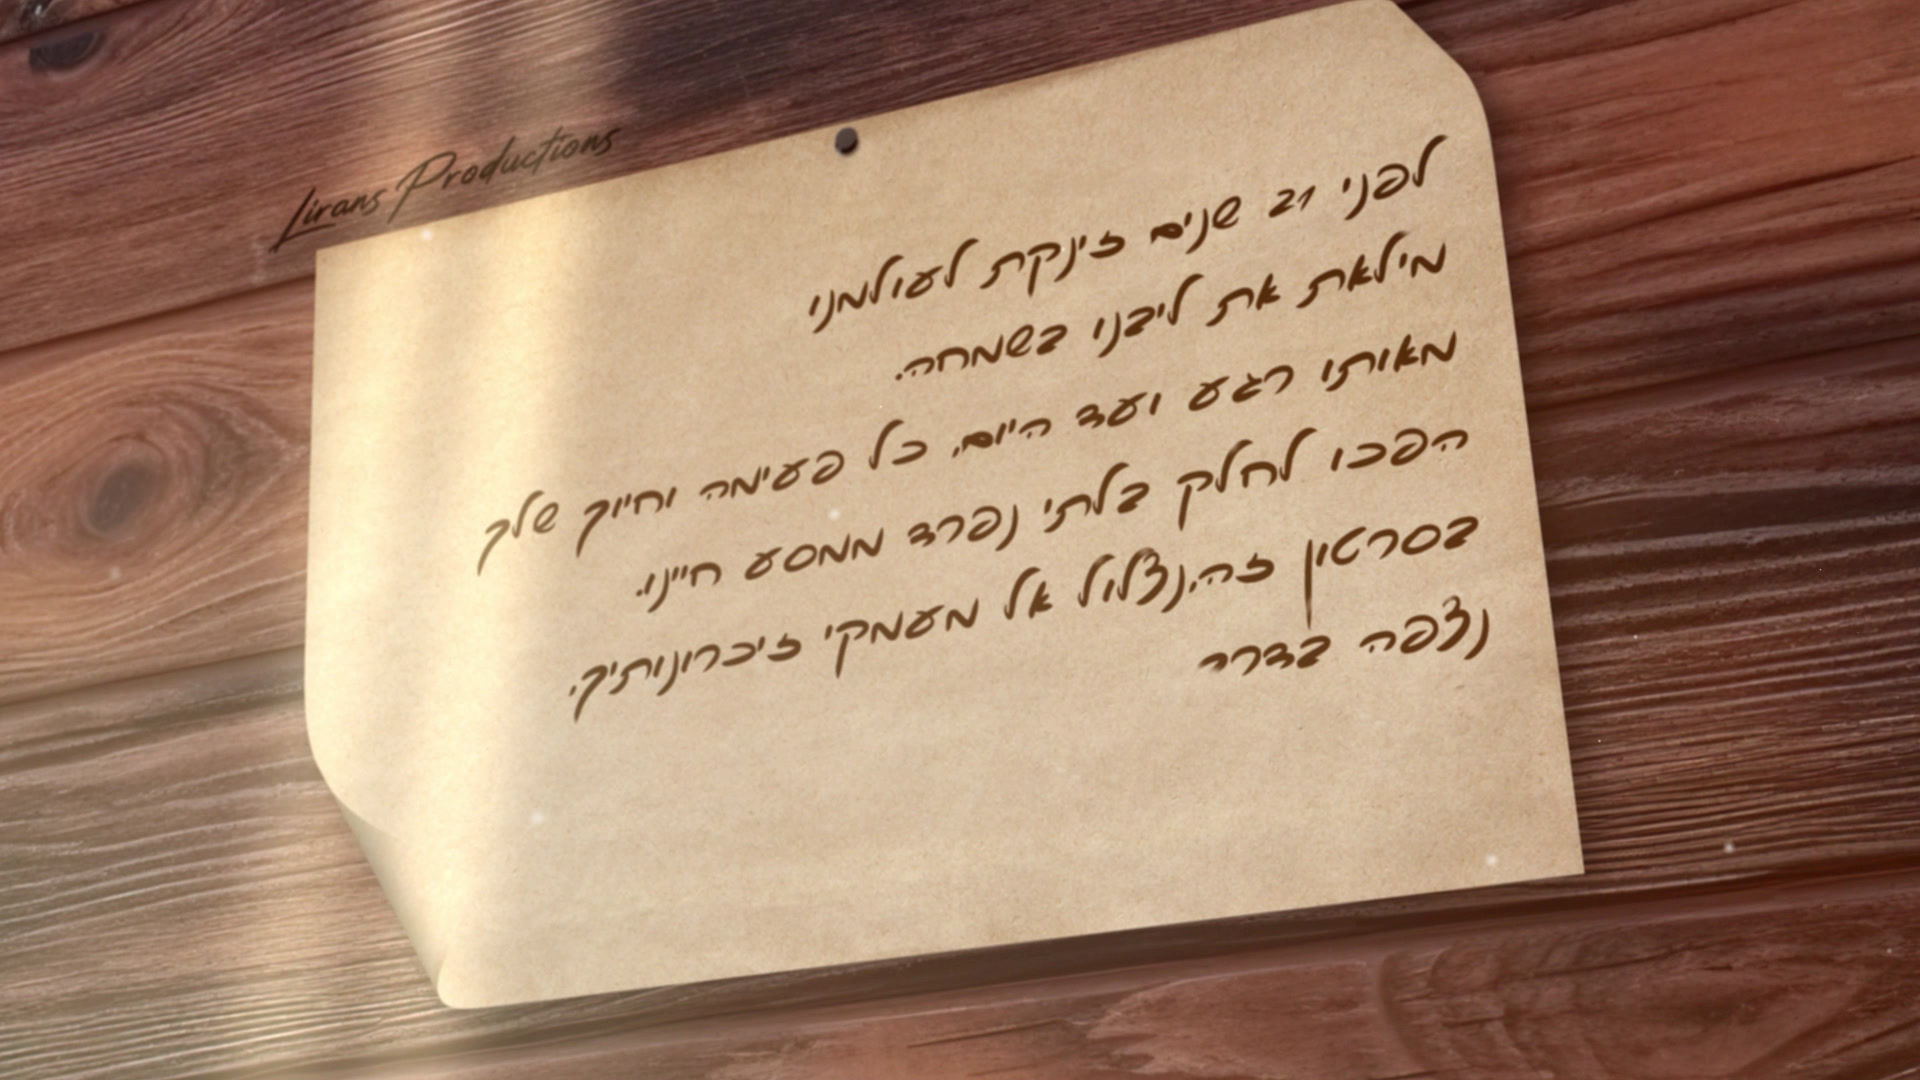 Lirans Productions
לפני 21 שנים זינקת לעולמנו
מילאת את ליבנו בשמחה.
מאותו רגע ועד היום, כל פעימה וחיוך שלך
הפכו לחלק בלתי נפרד ממסע חיינו.
בסרטון זה,נצלול אל מעמקי זיכרונותיך,
נצפה בדרר